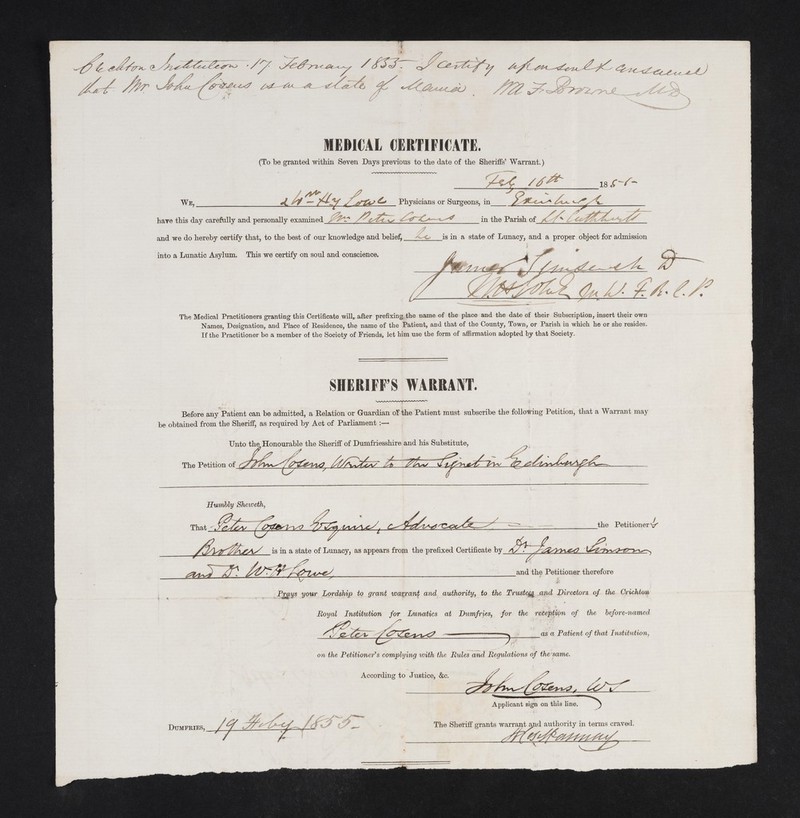 Crichton Institution 17 February 1855. I certify upon soul & conscience
that Mr John Cosens is in a state of Mania. W A F Browne MD
MEDICAL CERTIFICATE.
(To be granted within Seven Days previous to the date of the Sheriffs' Warrant.)
Feby 16th 1855
WE, & Wm Hy Lowe Physicians or Surgeons, in Edinburgh
have this day carefully and personally examined Mr Peter Cosens in the Parish of St. Cuthberts
and we do hereby certify that, to the best of our knowledge and belief, he is in a state of Lunacy, and a proper object for admission
into a Lunatic Asylum. This we certify on soul and conscience.
James Simson M D
W H Lowe M.D. F.R.C.P.
The Medical Practitioners granting this Certificate will, after prefixing the name of the place and the date of their Subscription, insert their own
Names, Designation, and Place of Residence, the name of the Patient, and that of the County, Town, or Parish in which he or she resides.
If the Practitioner be a member of the Society of Friends, let him use the form of affirmation adopted by that Society.
SHERIFF'S WARRANT.
Before any Patient can be admitted, a Relation or Guardian of the Patient must subscribe the following Petition, that a Warrant may
be obtained from the Sheriff, as required by Act of Parliament :—
Unto the Honourable the Sheriff of Dumfriesshire and his Substitute,
The Petition of John Cosens, Writer to the Signet in Edinburgh
Humbly Sheweth,
That Peter Cosens Esquire, Advocate the Petitioner's
Brother is in a state of Lunacy, as appears from the prefixed Certificate by Dr James Simson
and Dr W H Lowe, and the Petitioner therefore
Prays your Lordship to grant warrant and authority, to the Trustees and Directors of the Crichton
Royal Institution for Lunatics at Dumfries, for the reception of the before-named
Peter Cosens as a Patient of that Institution,
on the Petitioner's complying with the Rules and Regulations of the same.
According to Justice, &c.
John Cosens, WS
Applicant sign on this line.
DUMFRIES, 19 Feby 1855
The Sheriff grants warrant and authority in terms craved.